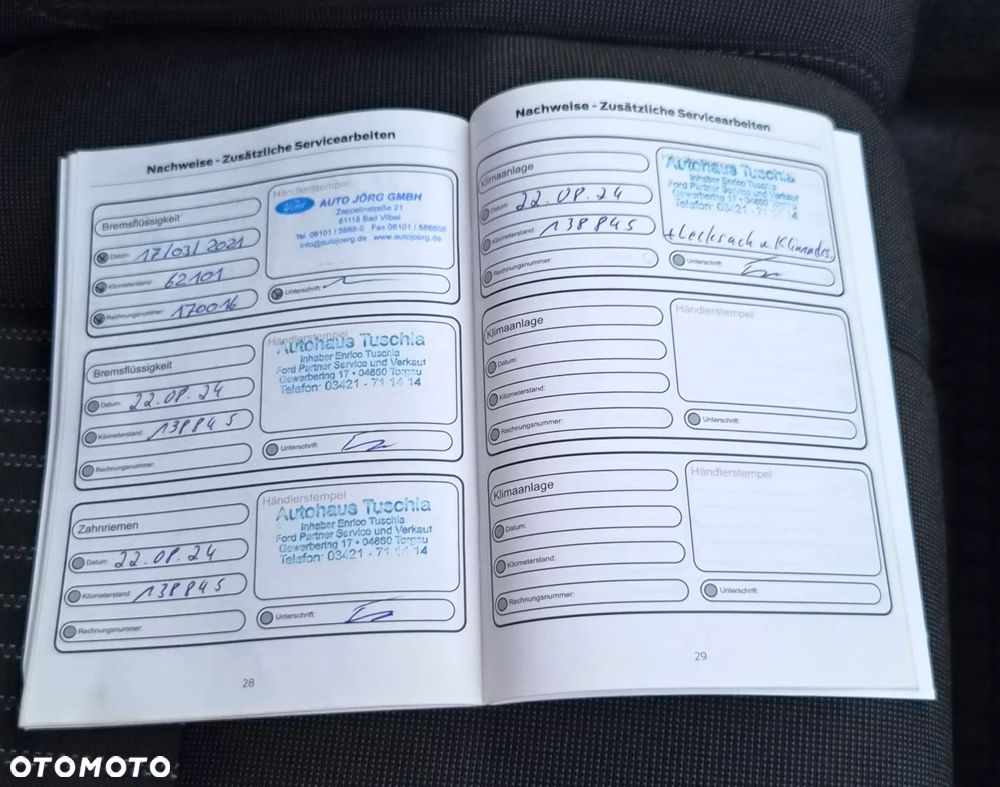 Nachweise - Zusätzliche Servicearbeiten
Bremsflüssigkeit
Datum: 17/03/2021
Kilometerstand: 62101
Rechnungsnummer: 170016
Händlerstempel
Ford
AUTO JÖRG GMBH
Zeppelinstraße 21
61118 Bad Vilbel
Tel. 06101 / Fax 06101 /
info@autojoerg.de www.autojoerg.de
Unterschrift:
Bremsflüssigkeit
Datum: 22.08.24
Kilometerstand: 138845
Rechnungsnummer:
Händlerstempel
Autohaus Tuschla
Inhaber Enrico Tuschla
Ford Partner Service und Verkauf
Gewerbering 17 • 04860 Torgau
Telefon: 03421 - 71 14 14
Unterschrift:
Zahnriemen
Datum: 22.08.24
Kilometerstand: 138845
Rechnungsnummer:
Händlerstempel
Autohaus Tuschla
Inhaber Enrico Tuschla
Ford Partner Service und Verkauf
Gewerbering 17 • 04860 Torgau
Telefon: 03421 - 71 14 14
Unterschrift:
28
Nachweise - Zusätzliche Servicearbeiten
Klimaanlage
Datum: 22.08.24
Kilometerstand: 138845
Rechnungsnummer:
Autohaus Tuschla
Inhaber Enrico Tuschla
Ford Partner Service und Verkauf
Gewerbering 17 • 04860 Torgau
Telefon: 03421 - 71 14 14
Unterschrift:
Klimaanlage
Datum:
Kilometerstand:
Rechnungsnummer:
Händlerstempel
Unterschrift:
Klimaanlage
Datum:
Kilometerstand:
Rechnungsnummer:
Händlerstempel
Unterschrift:
29
OTOMOTO